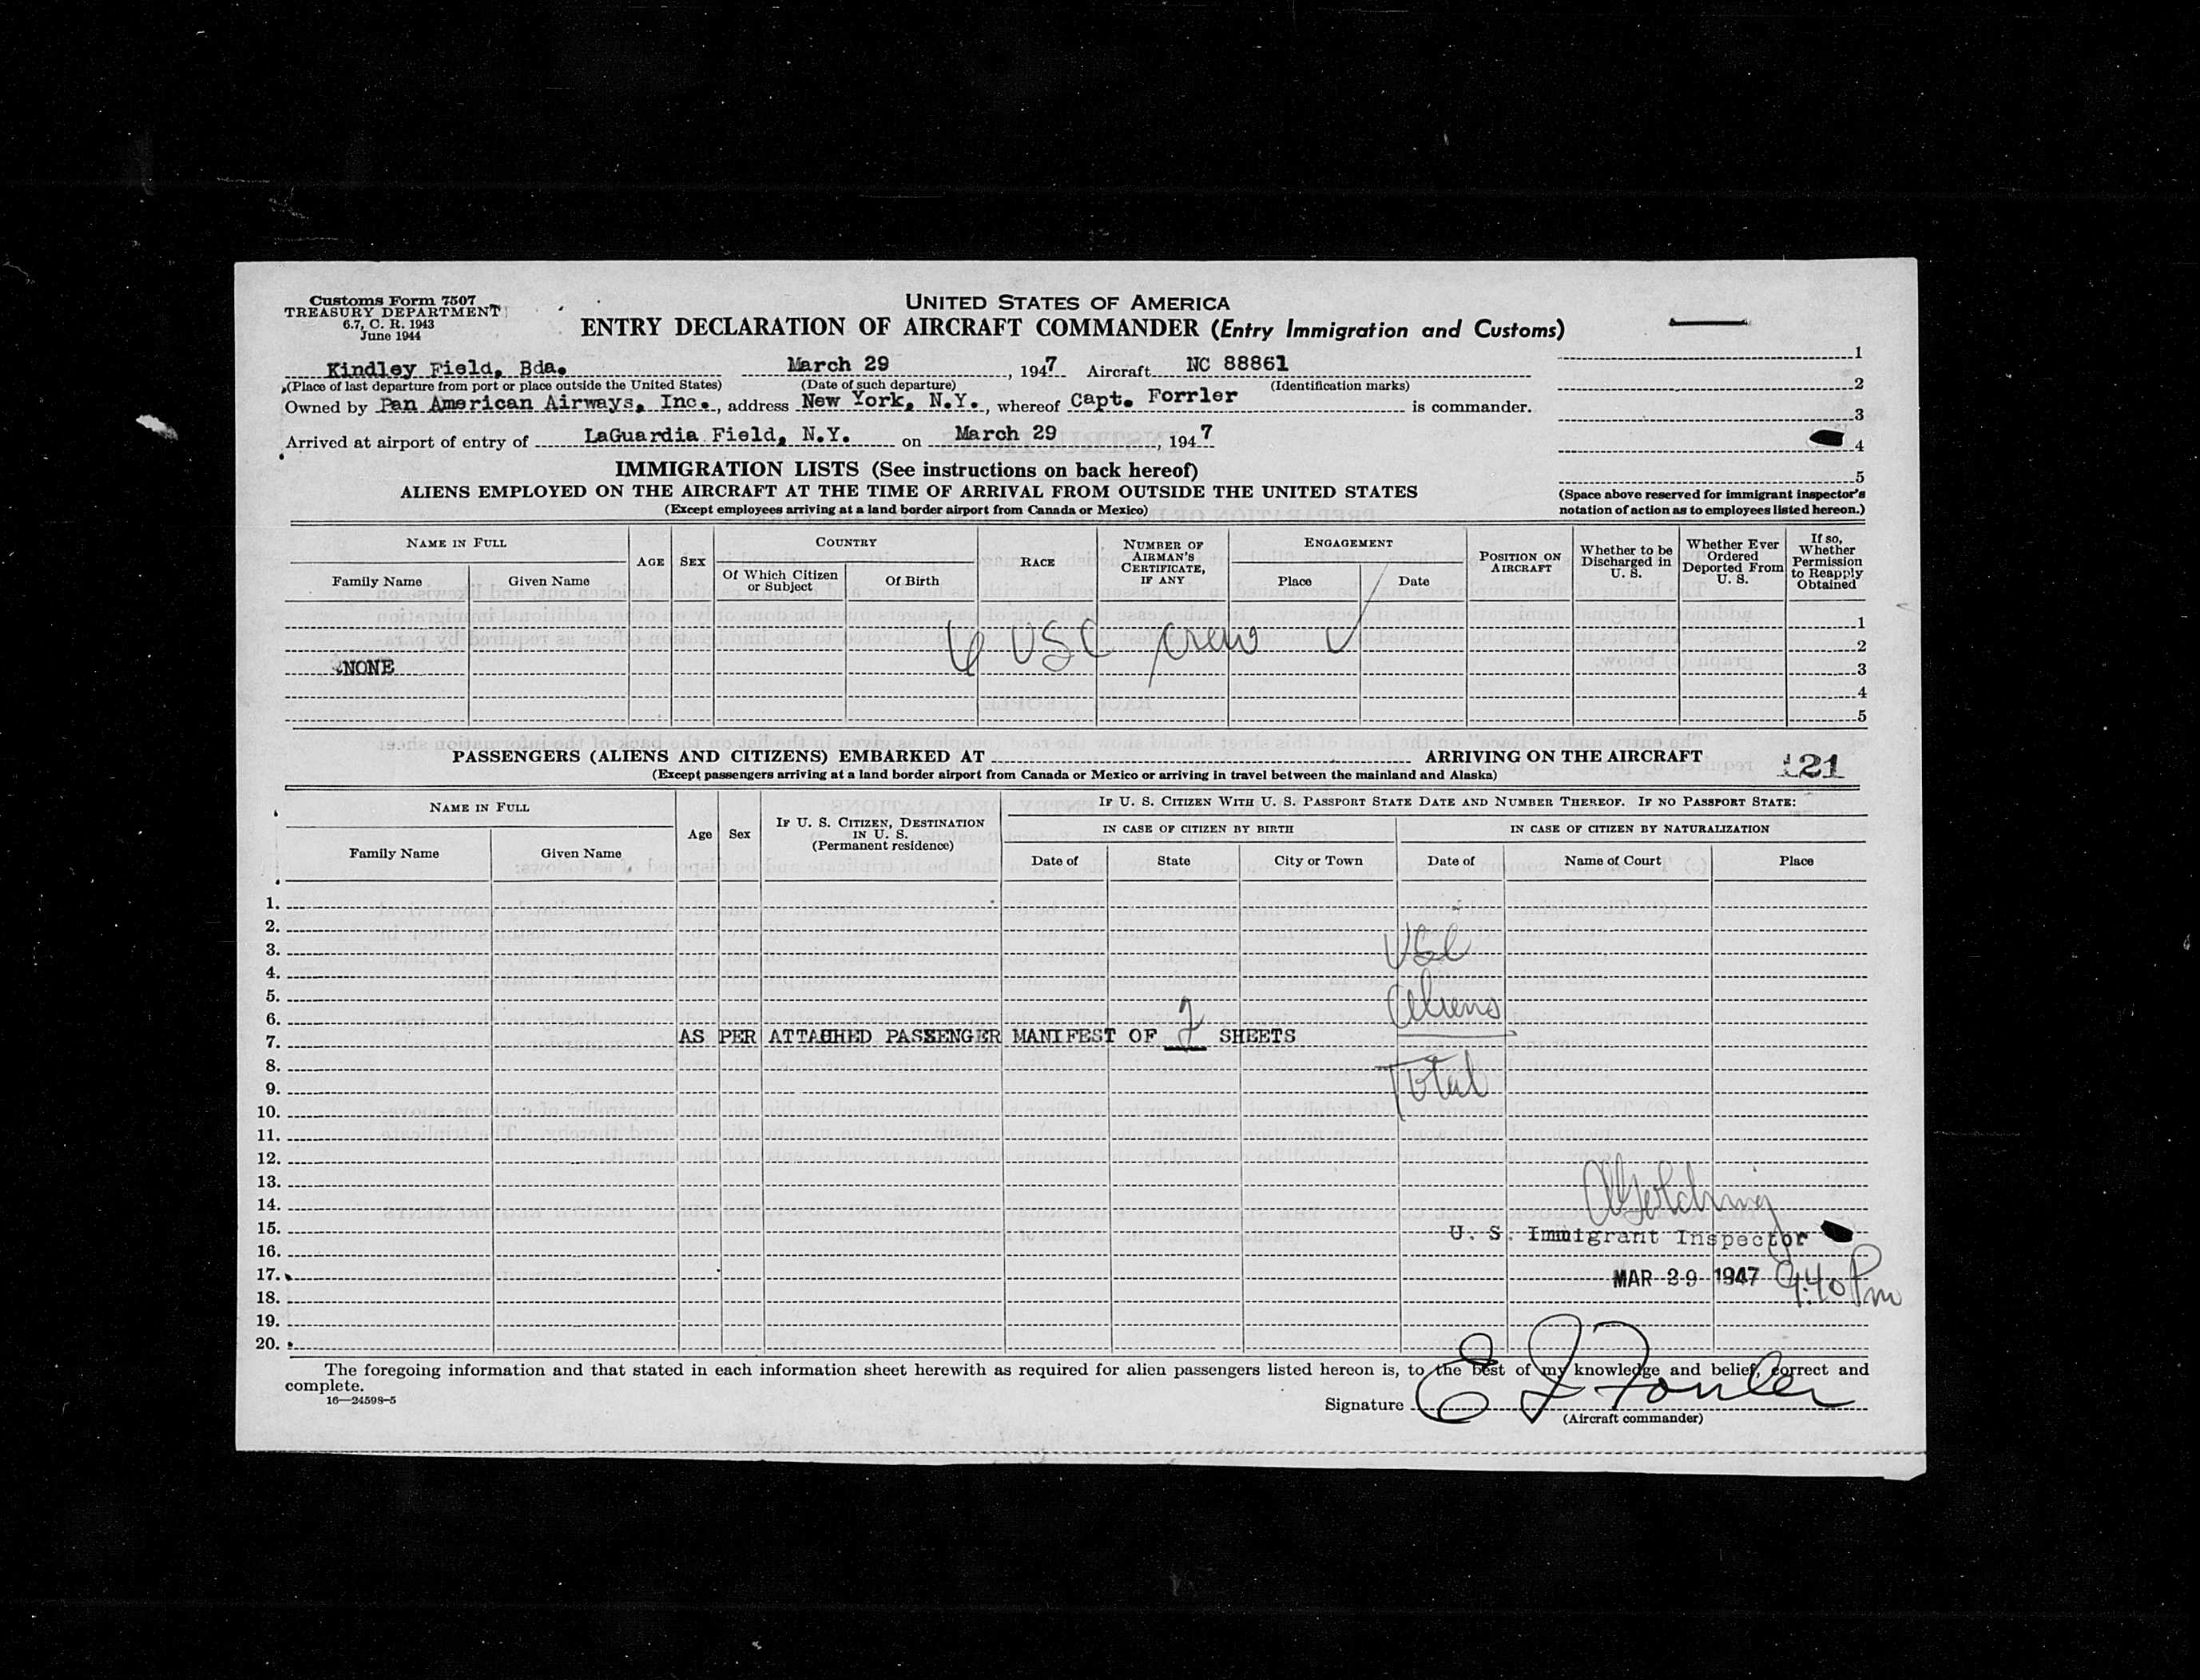 Customs Form 7507
TREASURY DEPARTMENT
6.7, C. R. 1943
June 1944
UNITED STATES OF AMERICA
ENTRY DECLARATION OF AIRCRAFT COMMANDER (Entry Immigration and Customs)
Kindley Field, Bda. March 29, 1947 Aircraft NC 88861
(Place of last departure from port or place outside the United States) (Date of such departure) (Identification marks)
Owned by Pan American Airways, Inc., address New York, N.Y., whereof Capt. Forrler is commander.
Arrived at airport of entry of LaGuardia Field, N.Y. on March 29, 1947
1
2
3
4
5
(Space above reserved for immigrant inspector's
notation of action as to employees listed hereon.)
IMMIGRATION LISTS (See instructions on back hereof)
ALIENS EMPLOYED ON THE AIRCRAFT AT THE TIME OF ARRIVAL FROM OUTSIDE THE UNITED STATES
(Except employees arriving at a land border airport from Canada or Mexico)
NAME IN FULL
Family Name
Given Name
AGE
SEX
COUNTRY
Of Which Citizen
or Subject
Of Birth
RACE
NUMBER OF
AIRMAN'S
CERTIFICATE,
IF ANY
ENGAGEMENT
Place
Date
POSITION ON
AIRCRAFT
Whether to be
Discharged in
U. S.
Whether Ever
Ordered
Deported From
U. S.
If so,
Whether
Permission
to Reapply
Obtained
1
6 USC crew ✓
2
NONE 3
4
5
PASSENGERS (ALIENS AND CITIZENS) EMBARKED AT ARRIVING ON THE AIRCRAFT
121
(Except passengers arriving at a land border airport from Canada or Mexico or arriving in travel between the mainland and Alaska)
NAME IN FULL
Family Name
Given Name
Age
Sex
IF U. S. CITIZEN, DESTINATION
IN U. S.
(Permanent residence)
IF U. S. CITIZEN WITH U. S. PASSPORT STATE DATE AND NUMBER THEREOF. IF NO PASSPORT STATE:
IN CASE OF CITIZEN BY BIRTH
Date of
State
City or Town
IN CASE OF CITIZEN BY NATURALIZATION
Date of
Name of Court
Place
1.
2.
3. USC
4.
5. Aliens
6.
7. AS PER ATTACHED PASSENGER MANIFEST OF 2 SHEETS
8.
9. Total
10.
11.
12.
13.
14. A Goldring
15. U. S. Immigrant Inspector
16.
17. MAR 29 1947 9:40 Pm
18.
19.
20.
The foregoing information and that stated in each information sheet herewith as required for alien passengers listed hereon is, to the best of my knowledge and belief, correct and
complete.
16—24598-5
Signature E J Fowler
(Aircraft commander)